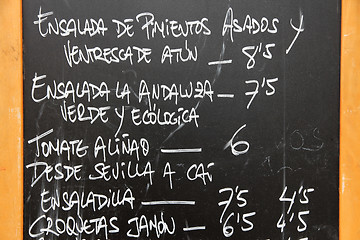 ENSALADA DE PIMIENTOS ASADOS Y
VENTRESCA DE ATÚN — 8'5
ENSALADA LA ANDALUZA — 7'5
VERDE Y ECOLÓGICA
TOMATE ALIÑAO — 6
DESDE SEVILLA A CAI
ENSALADILLA — 7'5 4'5
CROQUETAS JAMÓN — 6'5 4'5